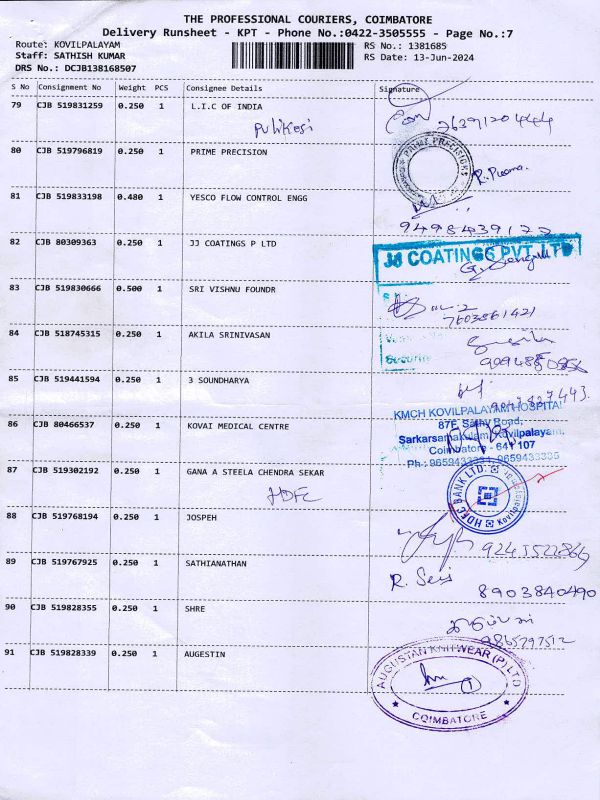 THE PROFESSIONAL COURIERS, COIMBATORE
Delivery Runsheet - KPT - Phone No.:0422-3505555 - Page No.:7
Route: KOVILPALAYAM
Staff: SATHISH KUMAR
DRS No.: DCJB138168507
RS No.: 1381685
RS Date: 13-Jun-2024
S No Consignment No Weight PCS Consignee Details Signature
79 CJB 519831259 0.250 1 L.I.C OF INDIA
Pulikesi
80 CJB 519796819 0.250 1 PRIME PRECISION
PRIME PRECISION
81 CJB 519833198 0.480 1 YESCO FLOW CONTROL ENGG
9498439177
82 CJB 80309363 0.250 1 JJ COATINGS P LTD
JJ COATINGS PVT LTD
83 CJB 519830666 0.500 1 SRI VISHNU FOUNDR
7603861421
84 CJB 518745315 0.250 1 AKILA SRINIVASAN
85 CJB 519441594 0.250 1 3 SOUNDHARYA
86 CJB 80466537 0.250 1 KOVAI MEDICAL CENTRE
KMCH KOVILPALAYAM HOSPITAL
87F, Sathy Road,
Sarkarsamakulam, Kovilpalayam,
Coimbatore - 641 107
87 CJB 519302192 0.250 1 GANA A STEELA CHENDRA SEKAR
HDFC
HDFC BANK LTD.
88 CJB 519768194 0.250 1 JOSPEH
89 CJB 519767925 0.250 1 SATHIANATHAN
8903840490
90 CJB 519828355 0.250 1 SHRE
9865797512
91 CJB 519828339 0.250 1 AUGESTIN
AUGUSTAN KNITWEAR (P) LTD
COIMBATORE